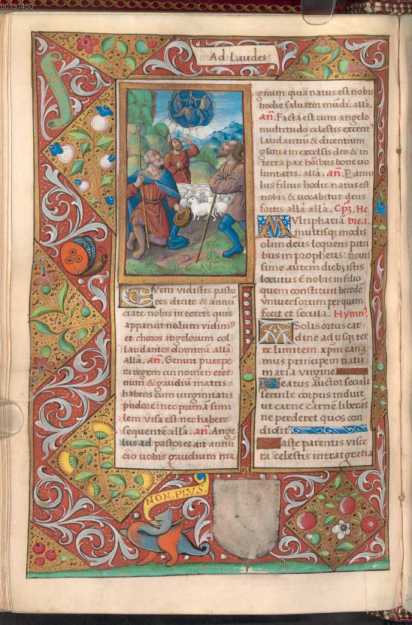 Ad Laudes
Quem vidistis pasto
res dicite & annu
ciate nobis in terris quis
apparuit natum vidim
et choros angelorum col
laudantes dominu alla
alla. añ. Genuit puerpe
ra regem cui nomen eter
num & gaudiu matris
habens cum virginitatis
pudore nec primam simi
lem visa est nec habere
sequente alla. añ. Ange
lus ad pastores ait annu
cio vobis gaudium ma
gnum quia natus est nobis
hodie salvator mudi. alla.
añ. Facta est cum angelo
multitudo celestis exercit
laudantiu & dicentium
gloria in excelsis deo & in
terra pax hoibus bone vo
luntatis. alla. añ. Parvu
lus filius hodie natus est
nobis & vocabitur deus
fortis alla alla. He
Multipharia
multisq modis
olim deus loquens patri
bus in prophetis: novi
ssime autem dieb istis
locutus est nobis in filio
quem constituit herede
universorum per quem
fecit et secula. Hymn
A Solis ortus car
dine ad usq ter
re limitem xpm cana
mus principem natu
maria virgine
Beatus auctor seculi
servile corpus induit
ut carne carnem liberas
ne perderet quos con
didit
Caste parentis visce
ra celestis intrat gratia
NON PLVS